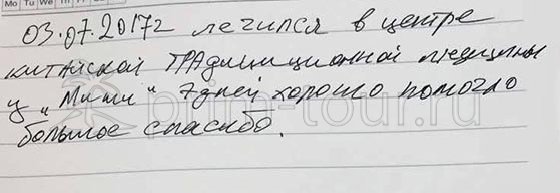 Mo Tu We Th Fr
03.07.2017г лечился в центре
китайской традициционной медицины
у „Миши“ 7 дней хорошо помогло
большое спасибо.
pram-tour.ru